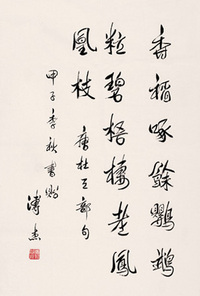 香稻啄餘鸚鵡
粒碧梧棲老鳳
凰枝
唐杜工部句
甲子季秋書
溥杰